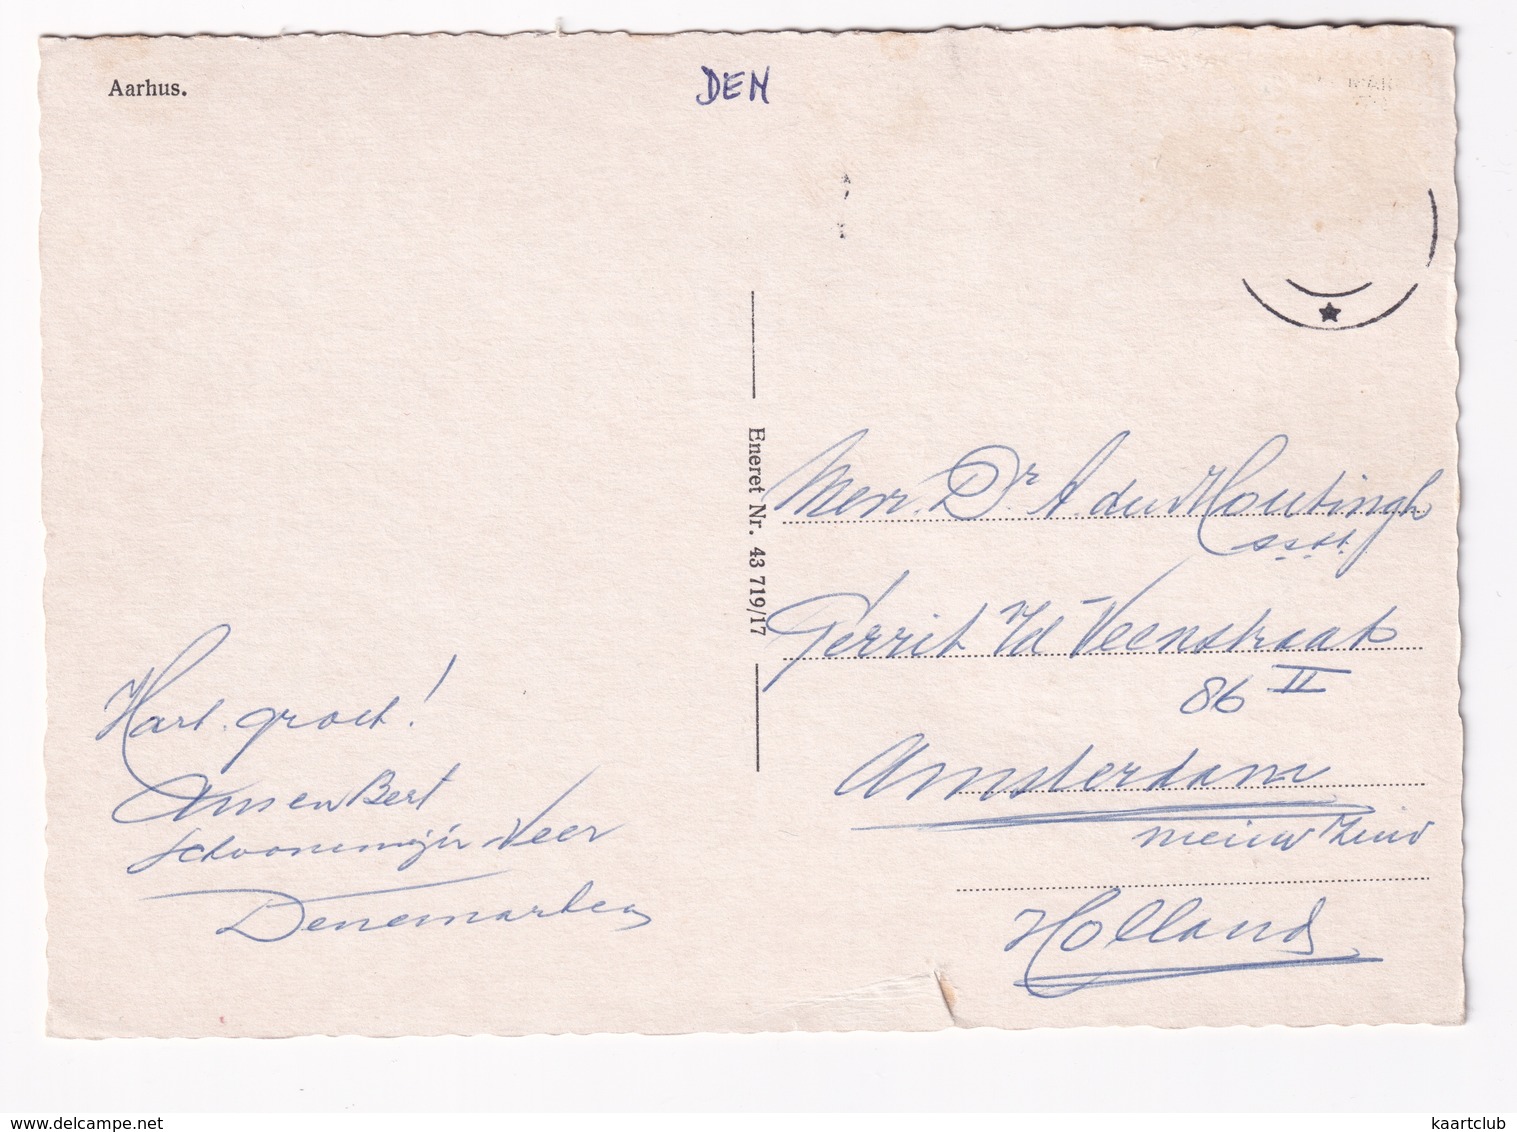 Aarhus.
DEN
Eneret Nr. 43 719/17
Hart. groet!
en Bert
Veer
Denemarken
Dr. A. Houtingh
Gerrit v/d Veenstraat
86 II
Amsterdam
nieuw Zuid
Holland
delcampe.net
kaartclub